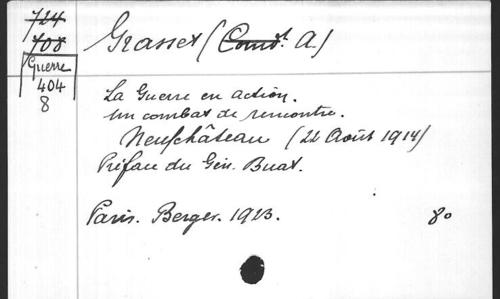 724
708
Guerre
404
8
Grasset (Comdt. A.)
La Guerre en action.
un combat de rencontre.
Neufchâteau (22 Août 1914)
Préface du Gén. Buat.
Paris. Berger. 1923. 8o